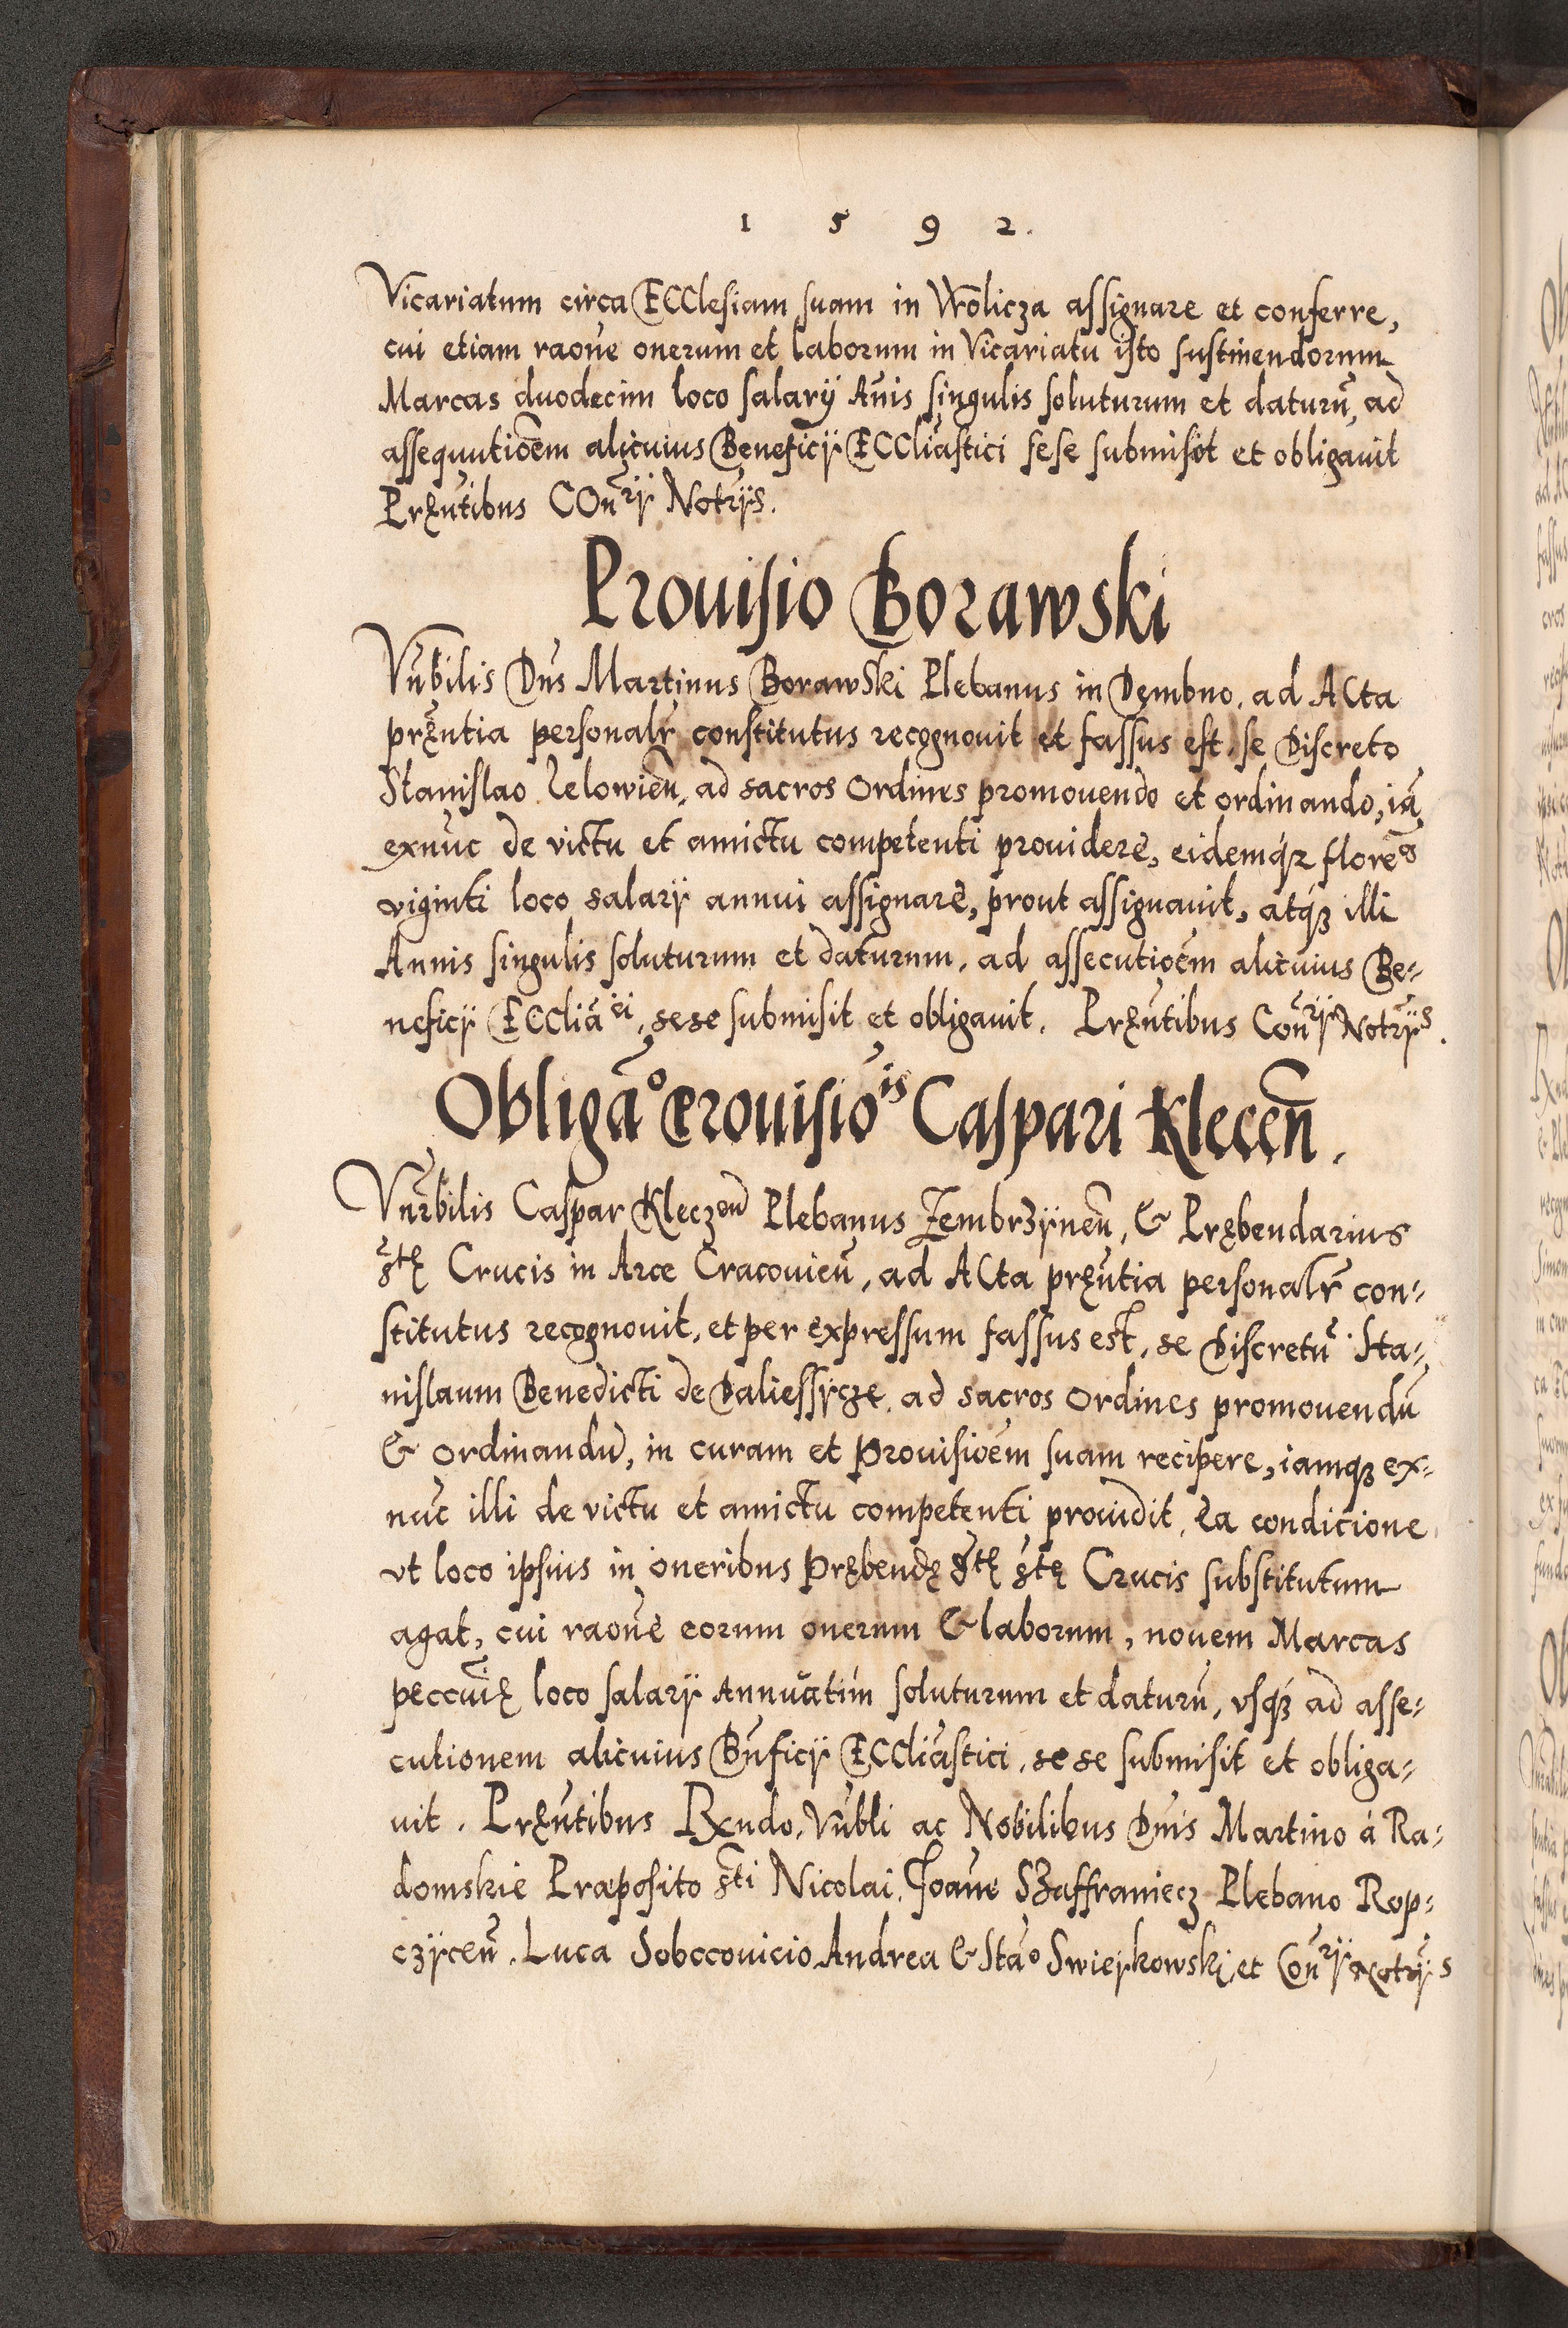 1 5 9 2.
Vicariatum circa ECClesiam suam in Wolicza assignare et conferre,
cui etiam raone onerum et laborum in Vicariatu isto sustinendorum
Marcas duodecim loco salarÿ Anis singulis soluturum et daturū, ad
assequutioēm alicuius Beneficÿ ECCliastici sese submisit et obligauit
Pręntibus COnrÿ Notrÿs.
Prouisio Borawski
Vnbilis Dns Martinus Borawski Plebanus in Dembno, ad ACta
pręntia personalr constitutus recognouit et fassus est, se Discreto
Stanislao Lelowien, ad sacros Ordines promouendo et ordinando, iā
exnūc de victu et amictu competenti prouidere, eidemqz flore os
viginti loco salarÿ annui assignare, prout assignauit, atqz illi
Annis singulis soluturum et daturum, ad assecutioēm alicuius Be-
neficÿ ECClia ci, sese submisit et obligauit. Pręntibus Conrÿ Notrÿs.
Obliga o Prouisio is Caspari Kleczen.
Vnrbilis Caspar Kleczen Plebanus Zembrzÿnen, & Prębendarius
Stę Crucis in Arce Cracouien, ad ACta pręntia personalr con-
stitutus recognouit, et per expressum fassus est, se Discretū Sta-
nislaum Benedicti de Daliessÿcze, ad sacros Ordines promouendū
& ordinandū, in curam et Prouisioēm suam recipere, iamqz ex-
nūc illi de victu et amictu competenti prouidit, ea condicione
vt loco ipsius in oneribus Prębendę Stę Stę Crucis substitutum
agat, cui raone eorum onerum & laborum, nouem Marcas
peccuię loco salarÿ Annuatim soluturum et daturū, vsqz ad asse-
cutionem alicuius Bnficÿ ECCliastici, sese submisit et obliga-
uit. Pręntibus Rndo, Vnbli ac Nobilibus Dnis Martino à Ra-
domskie Præposito Sti Nicolai, Joane Szaffraniecz Plebano Rop-
czÿcen, Luca Sobccouicio Andrea & Stāo Swieÿkowski, et Conrÿ Notrÿs